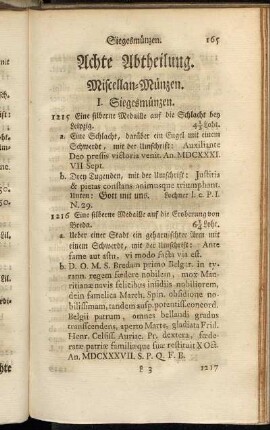 Siegesmünzen. 165
Achte Abtheilung.
Miscellan-Münzen.
I. Siegesmünzen.
1215 Eine silberne Medaille auf die Schlacht bey
Leipzig. 4½ Loht.
a. Eine Schlacht, darüber ein Engel mit einem
Schwerdt, mit der Umschrift: Auxiliante
Deo pressis victoria venit. An. MDCXXXI.
VII Sept.
b. Drey Tugenden, mit der Umschrift: Justitia
& pietas constans animusque triumphant.
Unten: Gott mit uns. Luchner l. c. P. I.
N. 29.
1216 Eine silberne Medaille auf die Eroberung von
Breda. 6¼ Loht.
a. Ueber einer Stadt ein geharnischter Arm mit
einem Schwerdt, mit der Umschrift: Ante
fame aut astu, vi modo facta via est.
b. D. O. M. S. Bredam primo Belgar. in ty-
rann. regem fœdere nobilem, mox Mau-
ritianæ navelis stratagemate nobiliorem,
dein famelica March. Spin. obsidione no-
bilissimam, tandem ausp. potentiss. concord.
Belgii patrum, omnes bellandi gradus
transscendens, aperto Marte, gladiata Frid.
Henr. Celsiss. Auriac. Pr. dextera, fœde-
ratæ patriæ familiæque suæ restituit X Oct.
An. MDCXXXVII. S. P. Q. F. B.
1217